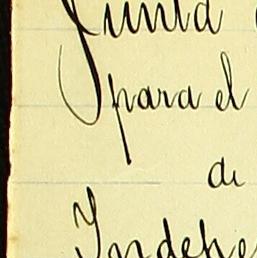 Junta
para el
de
Indepe